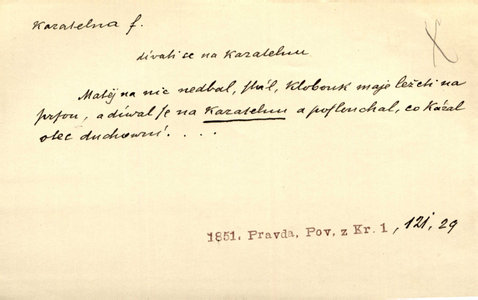 Kazatelna f.
dívati se na kazatelnu
Matěj na nic nedbal, stál, klobouk maje ležeti na
prsou, a díwal se na kazatelnu a poslouchal, co kázal
otec duchowní. . . .
1851. Pravda, Pov. z Kr. 1, 121, 29